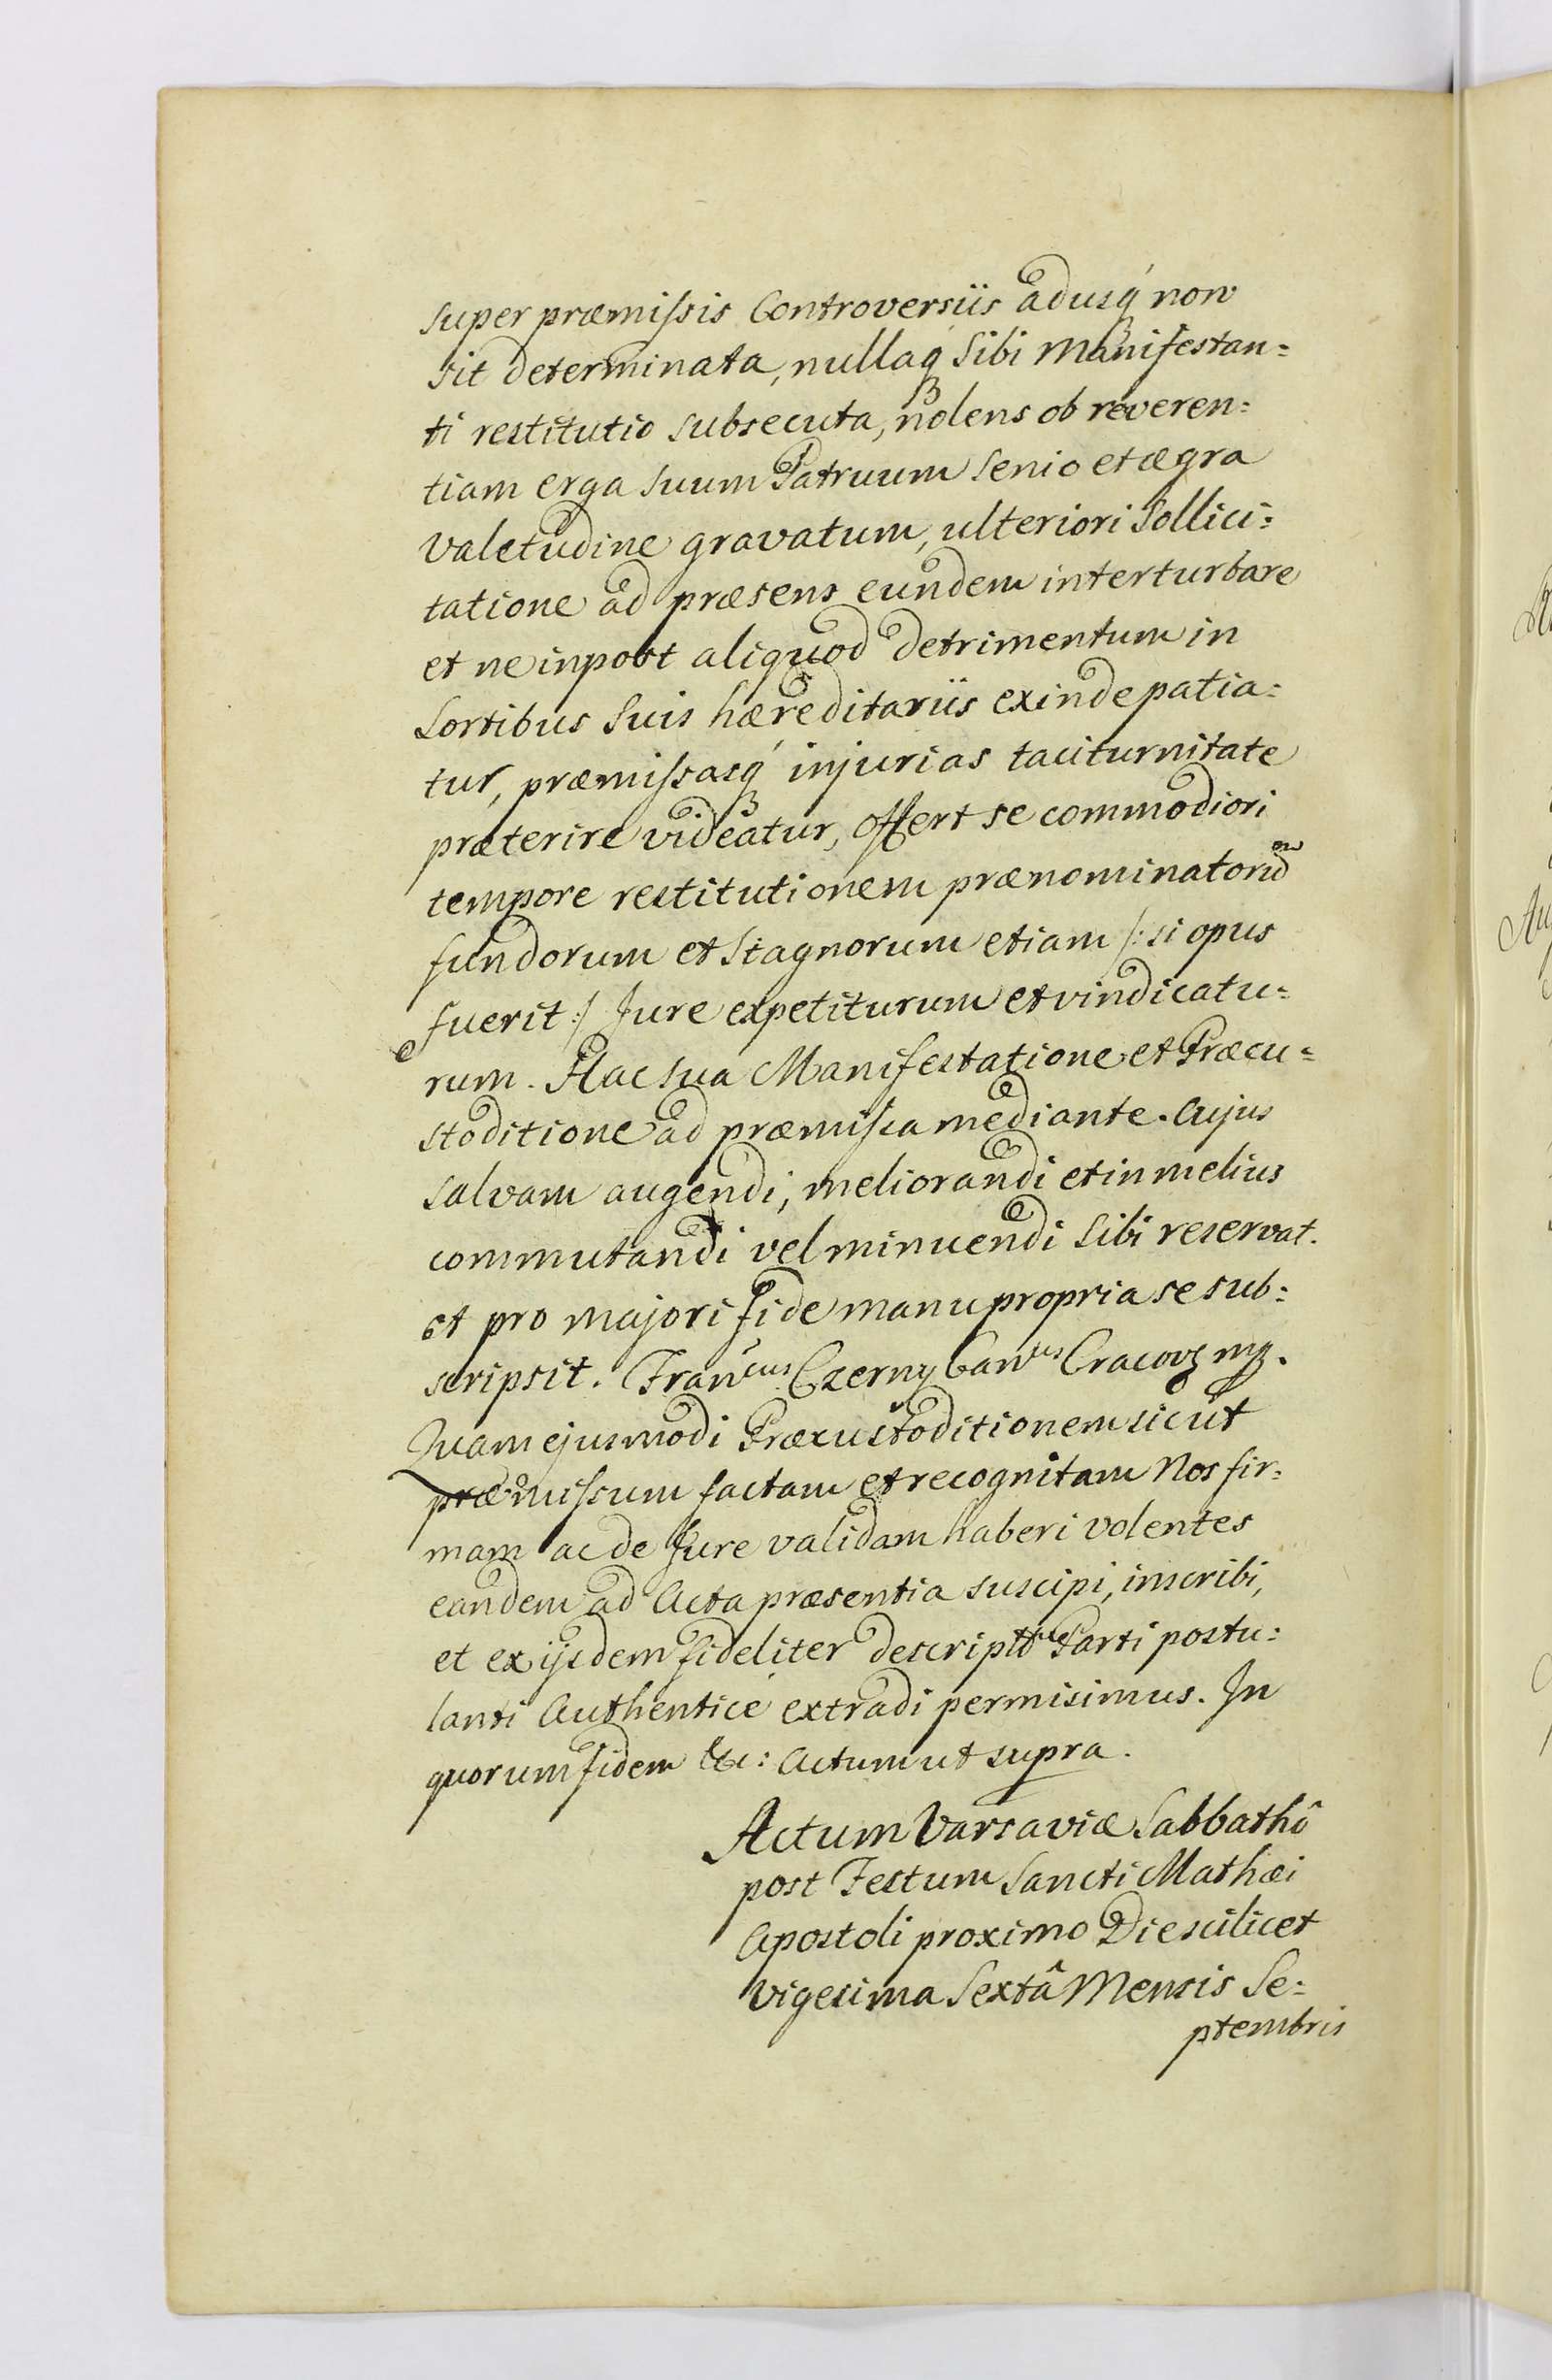 super præmissis Controversiis adusq́ non
sit determinata, nullaq́ Sibi Manifestan=
ti restitutio subsecuta, nolens ob reveren=
tiam erga suum Patruum senio et ægra
valetudine gravatum, ulteriori Sollici=
tatione ad præsens eundem interturbare
et ne inpost aliquod detrimentum in
Sortibus Suis hæreditariis exinde patia=
tur, præmissasq́ injurias taciturnitate
præterire videatur, offert se commodiori
tempore restitutionem prænominatorũ
fundorum et Stagnorum etiam /: si opus
fuerit :/ Jure expetiturum et vindicatu=
rum. Hac sua Manifestatione et Præcu=
stoditione ad præmissa mediante. Cujus
salvam augendi, meliorandi et in melius
commutandi vel minuendi sibi reservat.
et pro majori fide manu propria se sub=
scripsit. Fran^cus Czerny Can^cus Cracov mp.
Quam ejusmodi Præcustoditionem sicut
præmissum factam et recognitam Nos fir=
mam ac de Jure validam haberi volentes
eandem ad Acta præsentia suscipi, inscribi,
et ex ijsdem fideliter descriptã Parti postu=
lanti Authenticé extradi permisimus. In
quorum fidem &c: Actum ut supra.
Actum Varsaviæ Sabbathô
post Festum Sancti Mathæi
Apostoli proximo Die scilicet
vigesima Sextâ Mensis Se=
ptembris